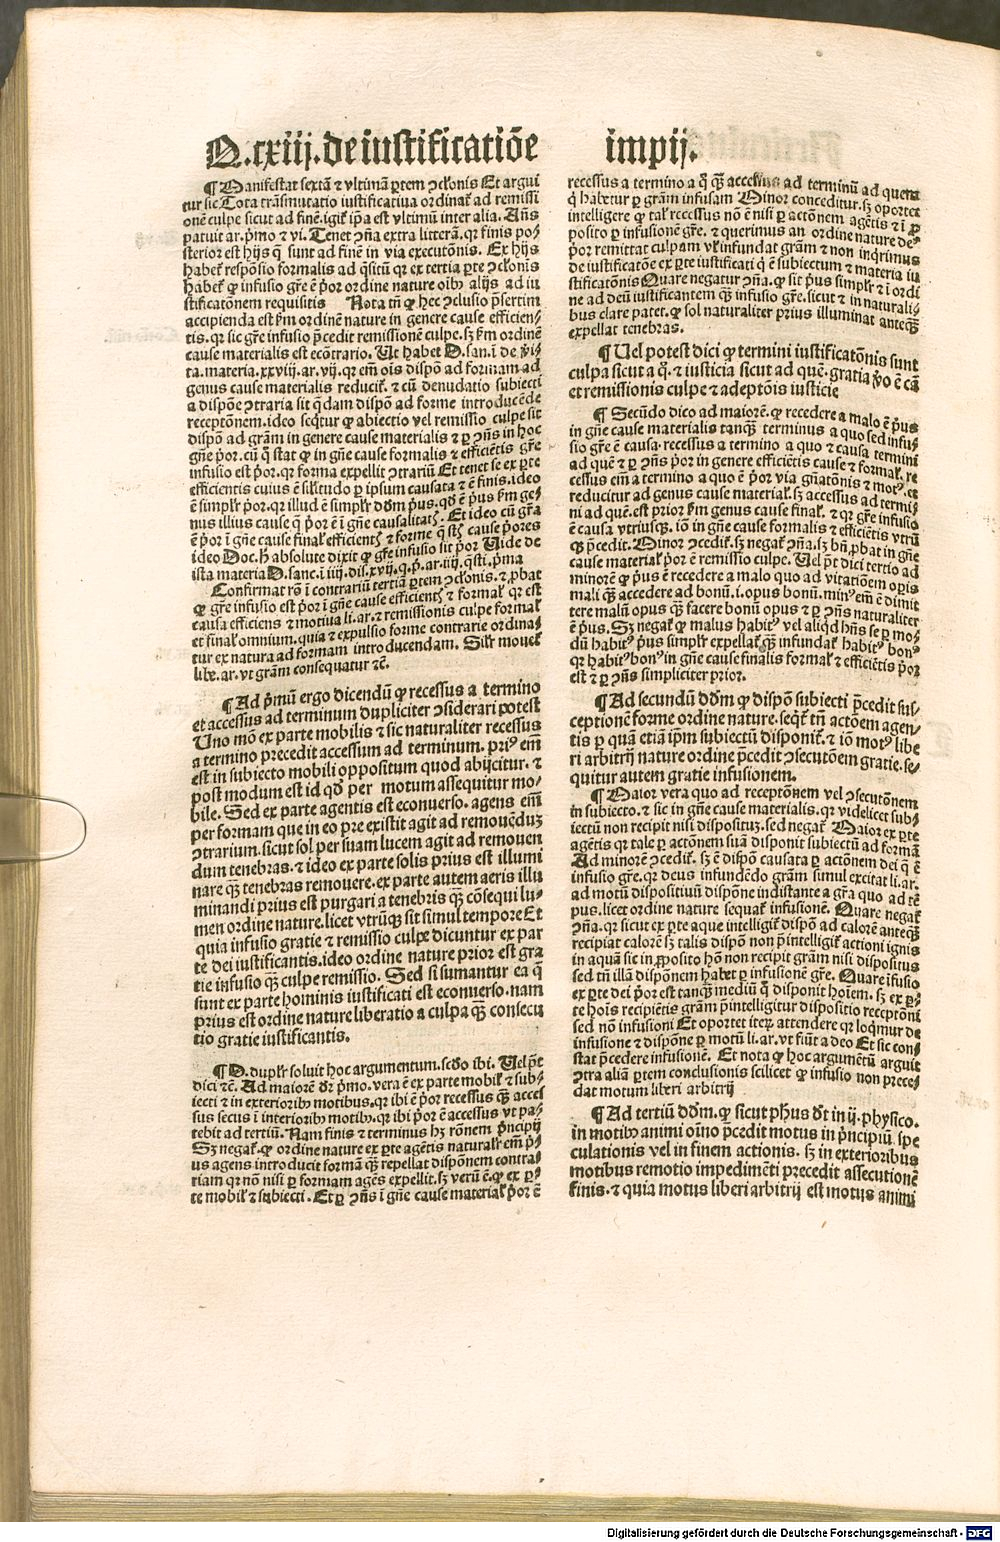 Q.cxiij.de iustificatiōe impij.
¶ Manifestat sextā ⁊ vltimā ꝑtem ꝯclonis Et argui
tur sic Tota trāsmutatio iustificatiua ordinat̄ ad remissi
onē culpe sicut ad finē.igit̄ ip̄a est vltimū inter alia. Añs
patuit ar.p̄mo ⁊ vi. Tenet ꝯña extra litterā.qꝛ finis po⸗
sterior est hijs q̄ sunt ad finē in via executōnis. Ex hijs
habet̄ respōsio formalis ad q̄sitū qꝛ ex tertia ꝑte ꝯclonis
habet̄ ꝙ infusio gr̄e ē p̄or ordine nature oibꝫ alijs ad iu
stificatōnem requisitis Nota tn̄ ꝙ hec ꝯclusio p̄sertim
accipienda est ẜm ordinē nature in genere cause efficien⸗
tis.qꝛ sic gr̄e infusio p̄cedit remissionē culpe.sꝫ ẜm ordinē
cause materialis est ecōtrario. Ut habet D.san.ī de v̄i⸗
ta.materia.xxviij.ar.vij.qꝛ em̄ ois dispō ad formam ad
genus cause materialis reducit̄. ⁊ cū denudatio subiecti
a dispōe ꝯtraria sit q̄dam dispō ad forme introducēde
receptōnem.ideo seq̄tur ꝙ abiectio vel remissio culpe sit
dispō ad grām in genere cause materialis ⁊ ꝑ ꝯñs in hoc
gn̄e p̄or.cū q̄ stat ꝙ in gn̄e cause formalis ⁊ efficiētis gr̄e
infusio est p̄or.qꝛ forma expellit ꝯtrariū Et tenet se ex ꝑte
efficientis cuius ē sil̄itudo ꝑ ipsum causata ⁊ ē finis.ideo
ē simplr̄ p̄or.qꝛ illud ē simplr̄ dd̄m p̄us.qd̄ ē p̄us ẜm ge⸗
nus illius cause q̄ p̄or ē ī gn̄e causalitatꝭ. Et ideo cū gr̄a
ē p̄or ī gn̄e cause final̄ efficientꝭ ⁊ forme q̄ st̄ꝭ cause p̄ores
ideo Doc. h̄ absolute dixit ꝙ gr̄e infusio sit p̄or Vide de
ista materia D.sanc.ī iiij.dis.xvij.q.p̄.ar.iiij.qsti.p̄ma
Confirmat rō ī contrariū tertiā ꝑtem ꝯclonis.⁊ ꝓbat
ꝙ gr̄e infusio est p̄or ī gn̄e cause efficientꝭ ⁊ formal̄ qꝛ est
causa efficiens ⁊ motiua li.ar.⁊ remissionis culpe formal̄
et final̄ omnium.quia ⁊ expulsio forme contrarie ordina⸗
tur ex natura ad formam introducendam. Silr̄ mouet̄
libe.ar.vt grām consequatur ⁊c̄.
¶ Ad p̄mū ergo dicendū ꝙ recessus a termino
et accessus ad terminum dupliciter ꝯsiderari potest
Uno mō ex parte mobilis ⁊ sic naturaliter recessus
a termino precedit accessum ad terminum. pri⁹ em̄
est in subiecto mobili oppositum quod abijcitur. ⁊
post modum est id qd̄ per motum assequitur mo⸗
bile. Sed ex parte agentis est econuerso. agens em̄
per formam que in eo pre existit agit ad remouēduꝫ
ꝯtrarium.sicut sol per suam lucem agit ad remouen
dum tenebras.⁊ ideo ex parte solis prius est illumi
nare qꝫ tenebras remouere.ex parte autem aeris illu
minandi prius est purgari a tenebris qꝫ cōsequi lu⸗
men ordine nature.licet vtrūqꝫ sit simul tempore Et
quia infusio gratie ⁊ remissio culpe dicuntur ex par
te dei iustificantis.ideo ordine nature prior est gra
tie infusio qꝫ culpe remissio. Sed si sumantur ea q̄
sunt ex parte hominis iustificati est econuerso.nam
prius est ordine nature liberatio a culpa qꝫ consecu
tio gratie iustificantis.
¶ D.duplr̄ soluit hoc argumentum.scd̄o ibi. Vel p̄t
dici ⁊c̄. Ad maiorē dr̄ p̄mo.vera ē ex parte mobil̄ ⁊ sub⸗
iecti ⁊ in exterioribꝫ motibus.qꝛ ibi ē p̄or recessus qꝫ acces
sus secus ī interioribꝫ motibꝫ.qꝛ ibi p̄or ē accessus vt pa⸗
tebit ad tertiū. Nam finis ⁊ terminus hꝫ rōnem p̄ncipij
Sꝫ negat̄.ꝙ ordine nature ex ꝑte agētis naturalr̄ em̄ p̄⸗
us agens introducit formā qꝫ repellat dispōnem contra⸗
riam qꝛ nō nisi ꝑ formam agēs expellit.sꝫ verū ē.ꝙ ex ꝑ⸗
te mobil̄ ⁊ subiecti. Et ꝑ ꝯñs ī gn̄e cause material̄ p̄or ē
recessus a termino a q̄ qꝫ accessus ad terminū ad quem
q̄ habetur ꝑ grām infusam Minor conceditur.sꝫ oportet
intelligere ꝙ tal̄ recessus nō ē nisi ꝑ actōnem agētis ⁊ ī ꝓ
posito ꝑ infusionē gr̄e. ⁊ querimus an ordine nature de⁹
p̄or remittat culpam vl̄ infundat grām ⁊ non inq̄rimus
de iustificatōe ex ꝑte iustificati q̄ ē subiectum ⁊ materia iu
stificatōnis Quare negatur ꝯña.ꝙ sit p̄us simplr̄ ⁊ ī ordi
ne ad deū iustificantem qꝫ infusio gr̄e.sicut ⁊ in naturali⸗
bus clare patet.ꝙ sol naturaliter prius illuminat anteqꝫ
expellat tenebras.
¶ Vel potest dici ꝙ termini iustificatōnis sunt
culpa sicut a q̄. ⁊ iusticia sicut ad quē.gratia v̄o ē cā
et remissionis culpe ⁊ adeptōis iusticie
¶ Secūdo dico ad maiorē.ꝙ recedere a malo ē p̄us
in gn̄e cause materialis tanqꝫ terminus a quo sed infu⸗
sio gr̄e ē causa.recessus a termino a quo ⁊ causa termini
ad quē ⁊ ꝑ ꝯñs p̄or in genere efficiētis cause ⁊ formal̄.re
cessus em̄ a termino a quo ē p̄or via gn̄atōnis ⁊ mot⁹.et
reducitur ad genus cause material̄.sꝫ accessus ad termi⸗
ni ad quē.est prior ẜm genus cause final̄. ⁊ qꝛ gr̄e infusio
ē causa vtriusqꝫ. iō in gn̄e cause formalis ⁊ efficiētis vtrū
qꝫ p̄cedit. Minor ꝯcedit̄.sꝫ negat̄ ꝯña.sꝫ bn̄ ꝓbat in gn̄e
cause material̄ p̄or ē remissio culpe. Vel p̄t dici tertio ad
minorē ꝙ p̄us ē recedere a malo quo ad vitatiōem opis
mali qꝫ accedere ad bonū.i.opus bonū.min⁹ em̄ ē dimit
tere malū opus qꝫ facere bonū opus ⁊ ꝑ ꝯñs naturaliter
ē p̄us. Sꝫ negat̄ ꝙ malus habit⁹ vel aliq̄d hn̄s se ꝑ mo⸗
dū habit⁹ p̄us simplr̄ expellat̄ qꝫ infundat̄ habit⁹ bon⁹
qꝛ habit⁹ bon⁹ in gn̄e cause finalis formal̄ ⁊ efficiētis p̄or
est ⁊ ꝑ ꝯñs simpliciter prior.
¶ Ad secundū dd̄m ꝙ dispō subiecti p̄cedit sus⸗
ceptionē forme ordine nature.seqt̄ tn̄ actōem agen⸗
tis ꝑ quā etiā ip̄m subiectū disponit̄. ⁊ iō mot⁹ libe
ri arbitrij nature ordine p̄cedit ꝯsecutōem gratie.se⸗
quitur autem gratie infusionem.
¶ Maior vera quo ad receptōnem vel ꝯsecutōnem
in subiecto.⁊ sic in gn̄e cause materialis.qꝛ videlicet sub⸗
iectū non recipit nisi disposituꝫ.sed negat̄ Maior ex ꝑte
agētis qꝛ tale ꝑ actōnem suā disponit subiectū ad formā
Ad minorē ꝯcedit̄. sꝫ ē dispō causata ꝑ actōnem dei q̄ ē
infusio gr̄e.qꝛ deus infundēdo grām simul excitat li.ar.
ad motū dispositiuū dispōne indistante a gr̄a quo ad tē
pus.licet ordine nature sequat̄ infusionē. Quare negat̄
ꝯña.qꝛ sicut ex ꝑte aque intelligit̄ dispō ad calorē anteqꝫ
recipiat calorē sꝫ talis dispō non p̄intelligit̄ actioni ignis
in aquā sic in ꝓposito hō non recipit grām nisi dispositus
sed tn̄ illā dispōnem habet ꝑ infusionē gr̄e. Quare īfusio
ex ꝑte dei p̄or est tanqꝫ mediū q̄ disponit hoīem. sꝫ ex ꝑ⸗
te hoīs recipiētis grām p̄intelligitur dispositio receptōni
sed non infusioni Et oportet iteꝝ attendere qꝛ loqmur de
infusione ⁊ dispōne ꝑ motū li.ar.vt fiūt a deo Et sic con⸗
stat p̄cedere infusionē. Et nota ꝙ hoc argumētū arguit
ꝯtra aliā ꝑtem conclusionis scilicet ꝙ infusio non prece⸗
dat motum liberi arbitrij
¶ Ad tertiū dd̄m.ꝙ sicut ph̄us dt̄ in ij.physico.
in motibꝫ animi oīno p̄cedit motus in p̄ncipiū spe
culationis vel in finem actionis. sꝫ in exterioribus
motibus remotio impedimēti precedit assecutionē
finis.⁊ quia motus liberi arbitrij est motus animi
Digitalisierung gefördert durch die Deutsche Forschungsgemeinschaft - DFG